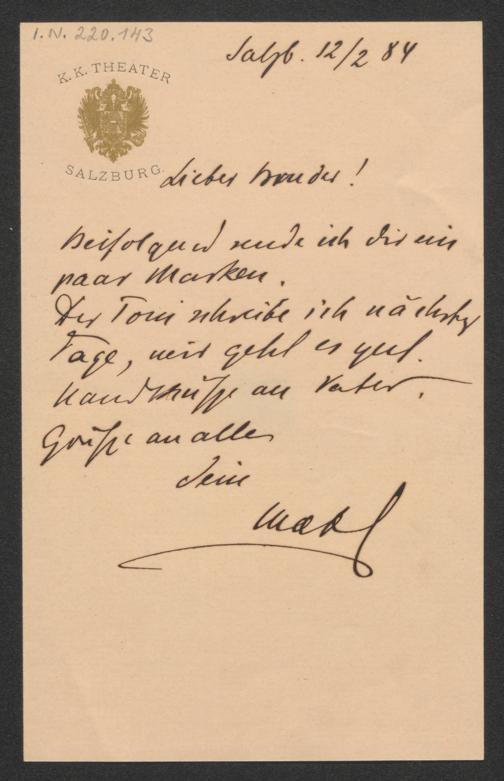 I.N. 220.143
Salzb. 12/2 84
K.K. THEATER
SALZBURG.
Lieber Bruder!
Beifolgend sende ich dir ein
paar Marken.
Der Toni schreibe ich nächster
Tage, mir geht es gut.
Handküsse an Vater.
Grüße an alle
Dein